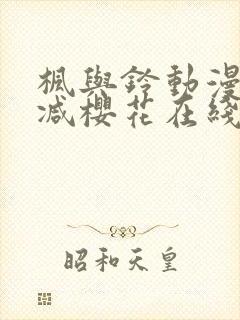 楓與鈴動漫
减櫻花在綫
昭和天皇